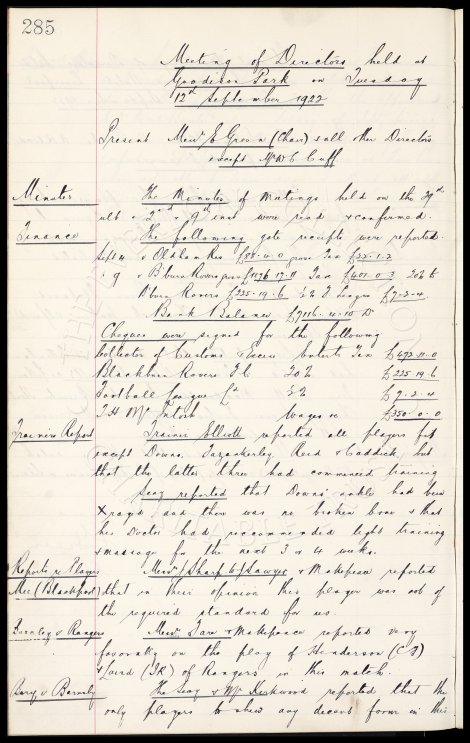 285
Meeting of Directors held at
Goodison Park on Tuesday
12th September 1922
Present Messrs E Green (Chair) & all other Directors
except Mr W C Cuff
Minutes The Minutes of Meetings held on the 29th
ult & 2nd & 9th inst were read & confirmed.
Finance The following gate receipts were reported.
Sept 4 v Oldham Res gross Tax
" 9 v B'burn Rovers gross £1176 17. 11 Tax £401. 0. 3 20% to
B'burn Rovers £225. 19. 6 ½% F League £7. 2. 4
Bank Balance £7116. 4. 10 Dr
Cheques were signed for the following
Collector of Customs & Excise Tax £492. 11. 0
Blackburn Rovers F C 20% £225. 19. 6
Football League Ld ½% £7. 2. 4
J H McIntosh Wages &c £350. 0. 0
Trainers Report Trainer Elliott reported all players fit
except Downs, Fazackerley, Reid & Caddick, but
that the latter three had commenced training
Secy reported that Downs' ankle had been
Xrayd, and there was no broken bone & that
his Doctor had recommended light training
& massage for the next 3 or 4 weeks.
Reports re Players Messrs Sharp & Sawyer & Makepeace reported
(Blackpool) that in their opinion this player was not of
the required standard for us.
Burnley v Rangers Messrs & Makepeace reported very
favorably on the play of Henderson (C F)
& Laird (I R) of Rangers in this match.
Bury v Barnsley The Secy & Mr Kirkwood reported that the
only players to shew any decent form in this